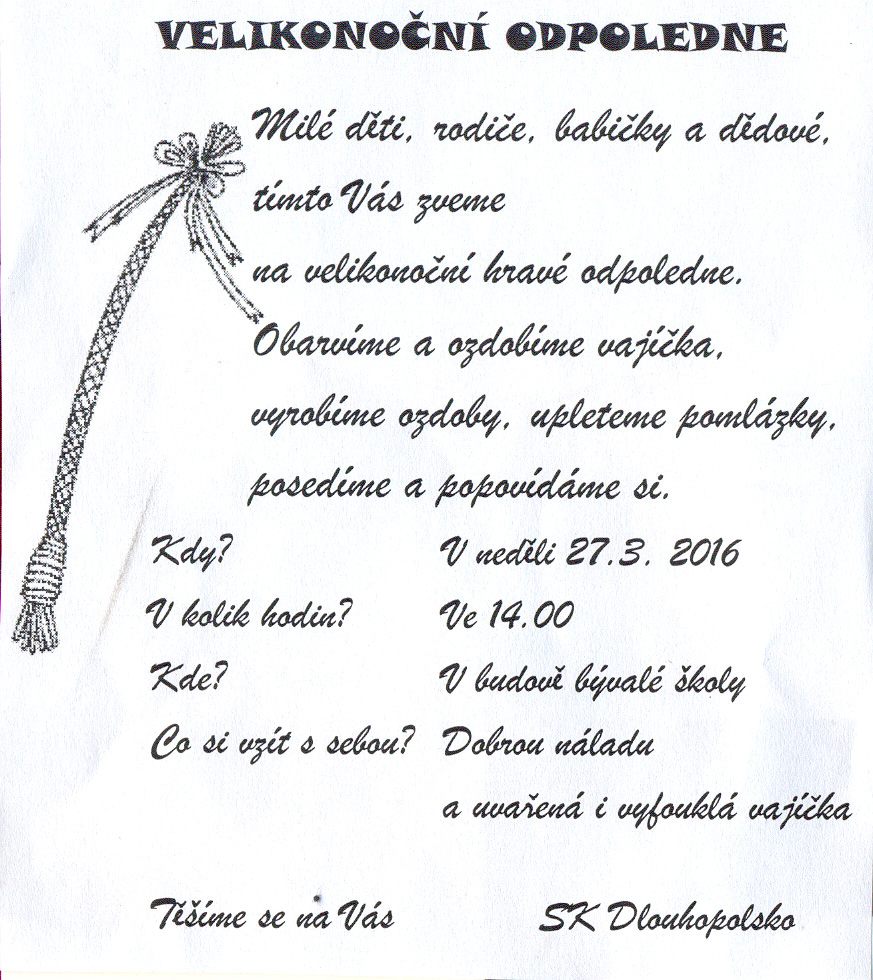 VELIKONOČNÍ ODPOLEDNE
Milé děti, rodiče, babičky a dědové,
tímto Vás zveme
na velikonoční hravé odpoledne.
Obarvíme a ozdobíme vajíčka,
vyrobíme ozdoby, upleteme pomlázky,
posedíme a popovídáme si.
Kdy? V neděli 27.3. 2016
V kolik hodin? Ve 14.00
Kde? V budově bývalé školy
Co si vzít s sebou? Dobrou náladu
a uvařená i vyfouklá vajíčka
Těšíme se na Vás SK Dlouhopolsko